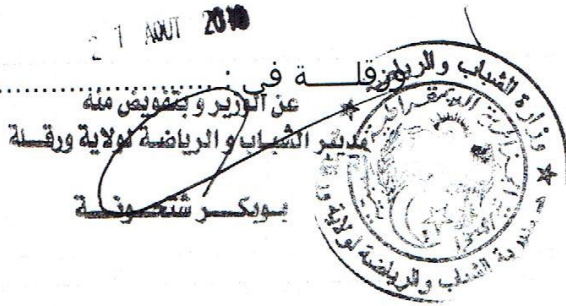 2 7 AOUT 2010
ورقلــــة في :
عن الوزير و بتفويض منه
مدير الشباب و الرياضة لولاية ورقلــة
بوبكــر شتحــونــة
وزارة الشباب والرياضة
مديرية الشباب والرياضة لولاية